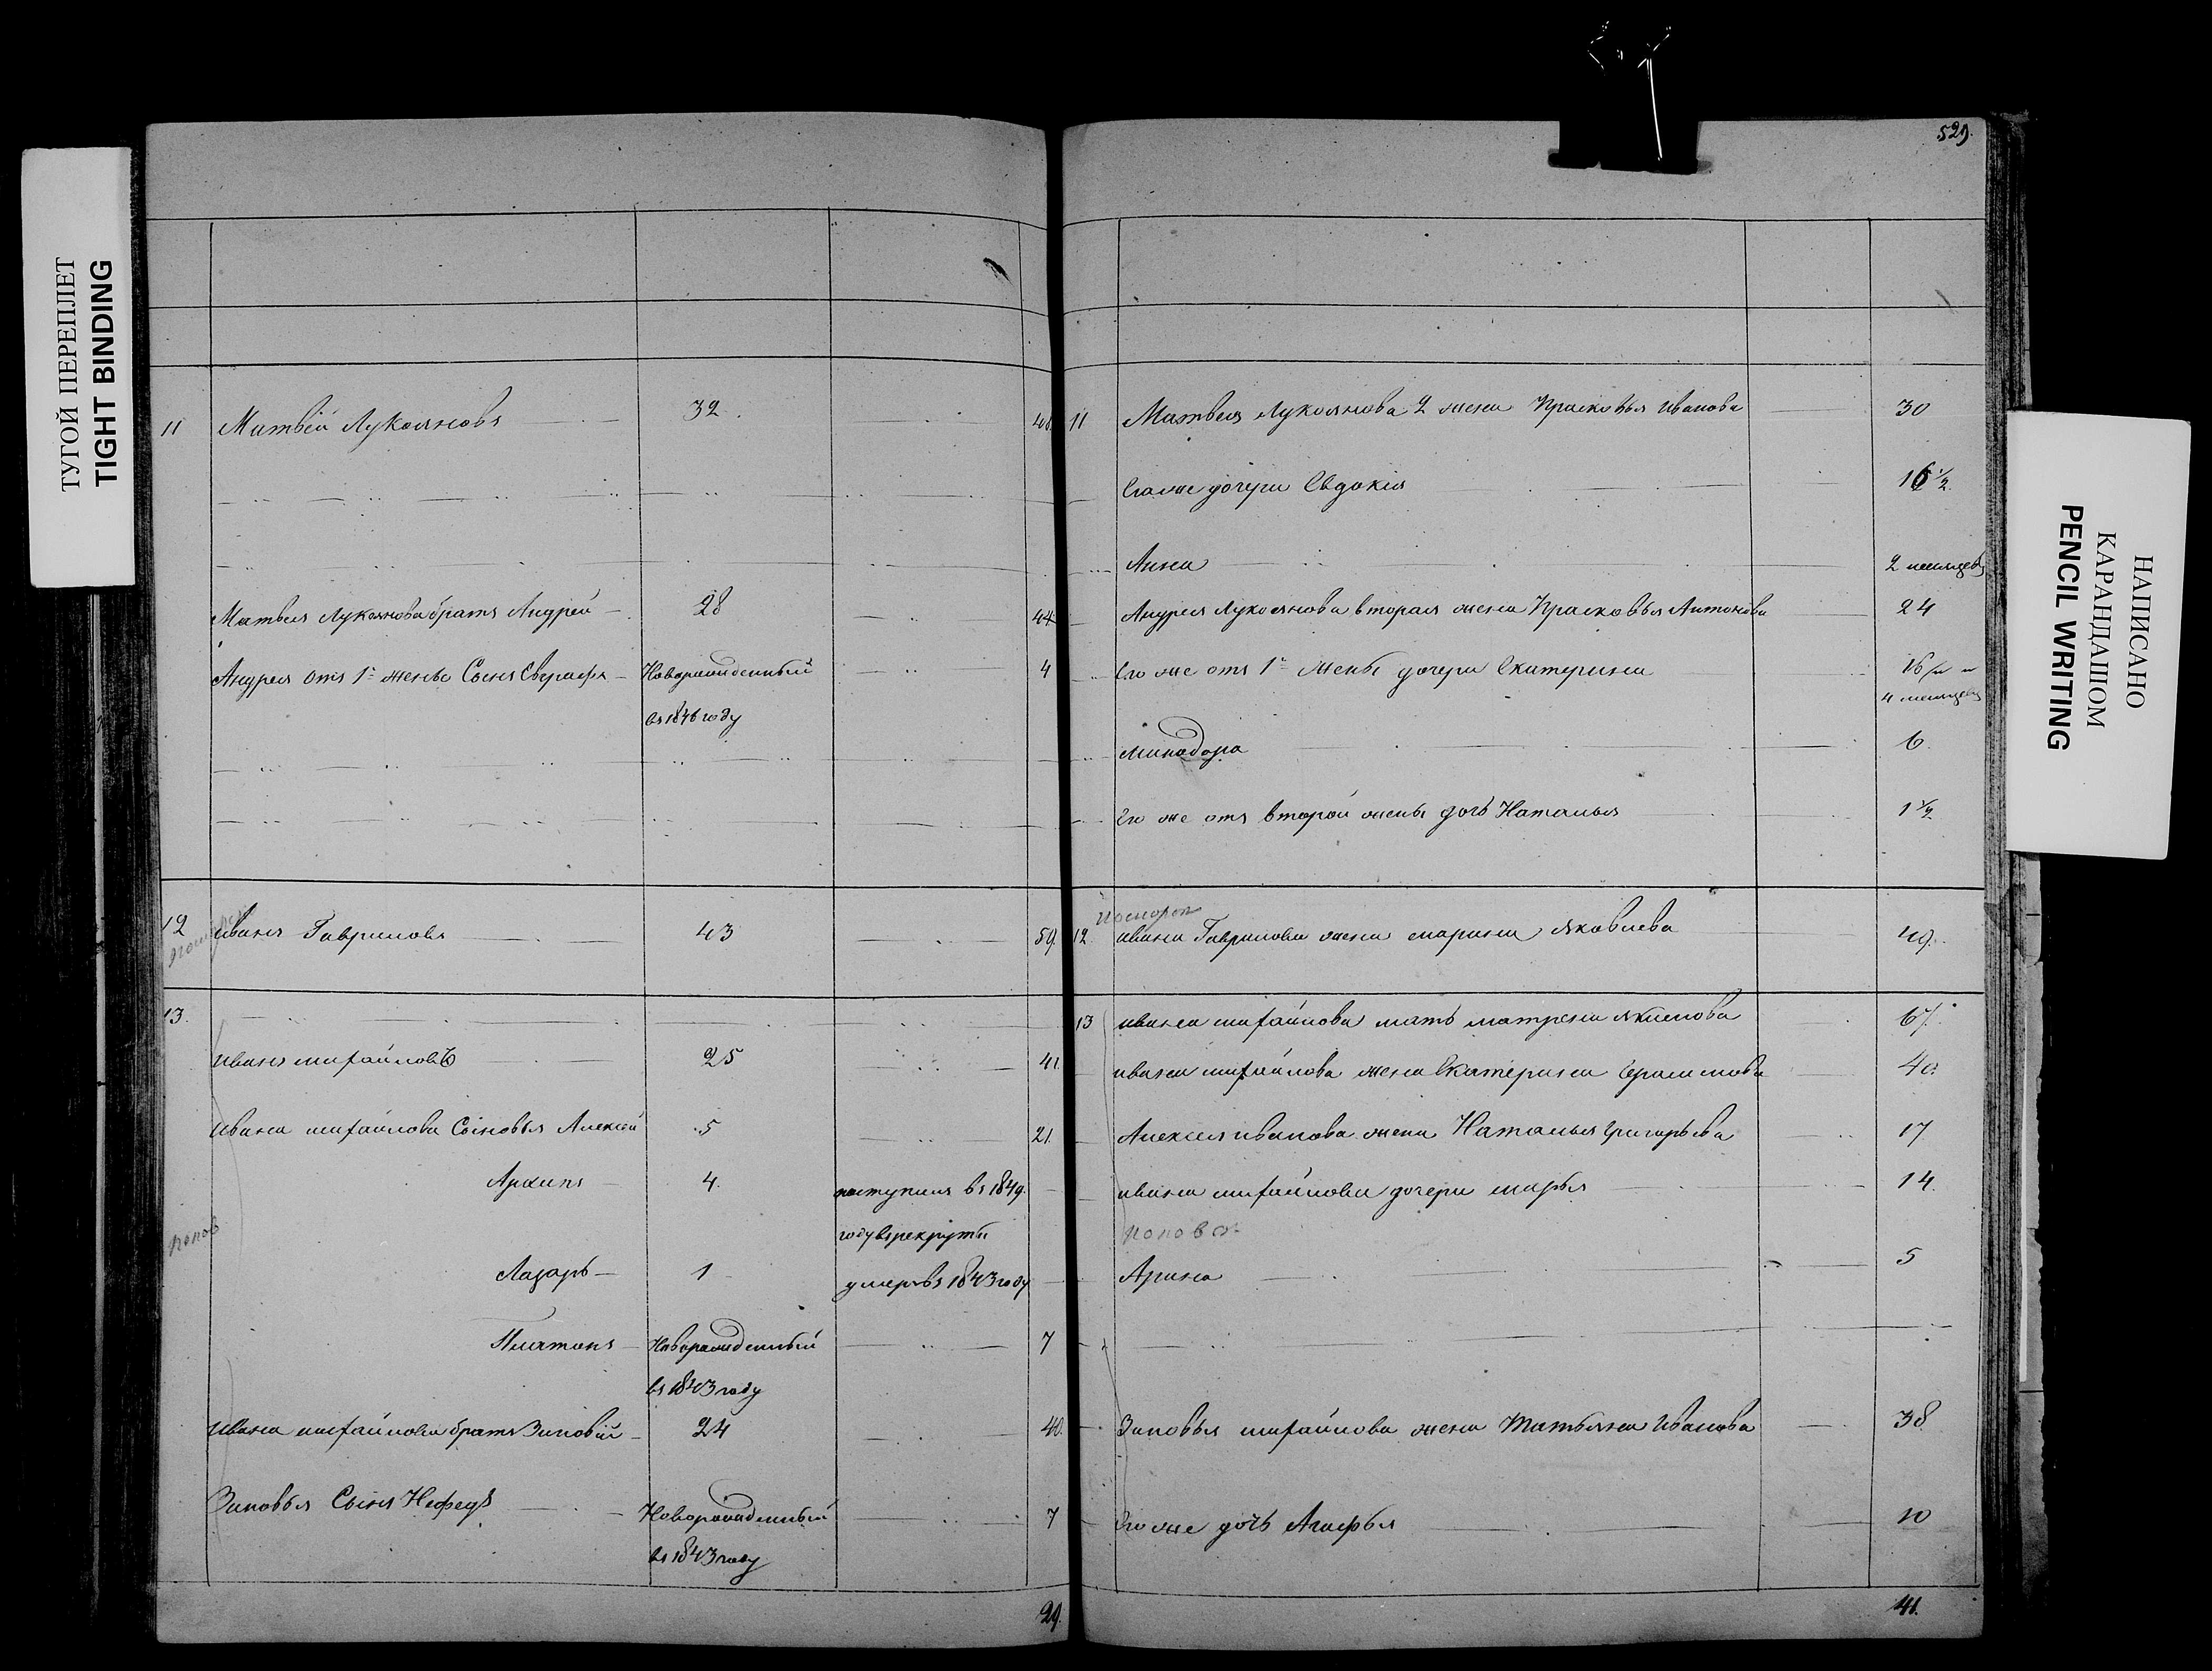 ТУГОЙ ПЕРЕПЛЕТ
TIGHT BINDING
529.
НАПИСАНО
КАРАНДАШОМ
PENCIL WRITING
11 Матвей Лукояновъ 32 48.
Матвея Лукоянова братъ Андрей 28 44
Андрея отъ 1й жены Сынъ Евграфъ Новорожденный 4
въ 1846 году
12 Иванъ Гавриловъ 43 59.
13.
Иванъ михайловъ 25 41.
Ивана михайлова Сыновья Алексей 5 21.
Архипъ 4. поступилъ въ 1849.
году в рекруты
попов
Лазарь 1 умеръ въ 1843 году
Платонъ Новорожденный 7
въ 1843 году
Ивана михайлова братъ Зиновий 24 40.
Зиновья Сынъ Нефедъ Новорожденный 7
въ 1843 году
29.
11 Матвея Лукоянова 2 жена Прасковья Иванова 30
Его же дочери Евдокия 16 1/2.
Анна 2 месяцев
Андрея Лукоянова вторая жена Прасковья Антонова 24
Его же отъ 1й жены дочери Екатерина
4 месяцев
минадора 6.
Его же отъ второй жены дочь Наталья 1 1/2
12. Ивана Гаврилова жена марина Яковлева 49.
13 Ивана михайлова мать матрена Якимова 67.
Ивана михайлова жена Екатерина Герасимова 40.
Алексея Иванова жена Наталья Григорьева 17
Ивана михайлова дочери марья 14.
попова
Арина 5
Зиновья михайлова жена Татьяна Иванова 38
Его же дочь Агафья 10
41.